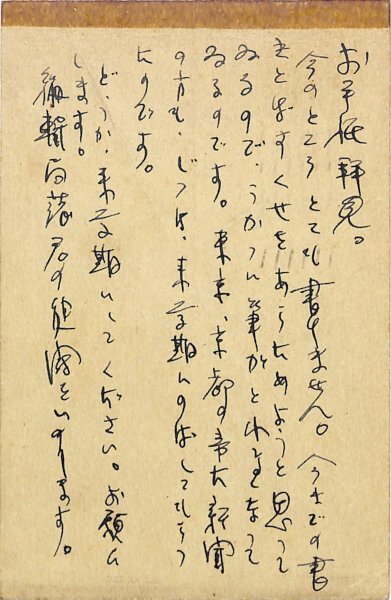 お手紙拝見。
今のところとても書けません。今までの書
きとばすくせをあらためようと思って
ゐるので、うかつに筆がとれなくなって
ゐるのです。東京、京都の帝大新聞
の方も、じつは、来学期にのばしてもらっ
たのです。
どうか、来学期にしてください。お願ひ
します。
編輯部諸君の健闘をいのります。